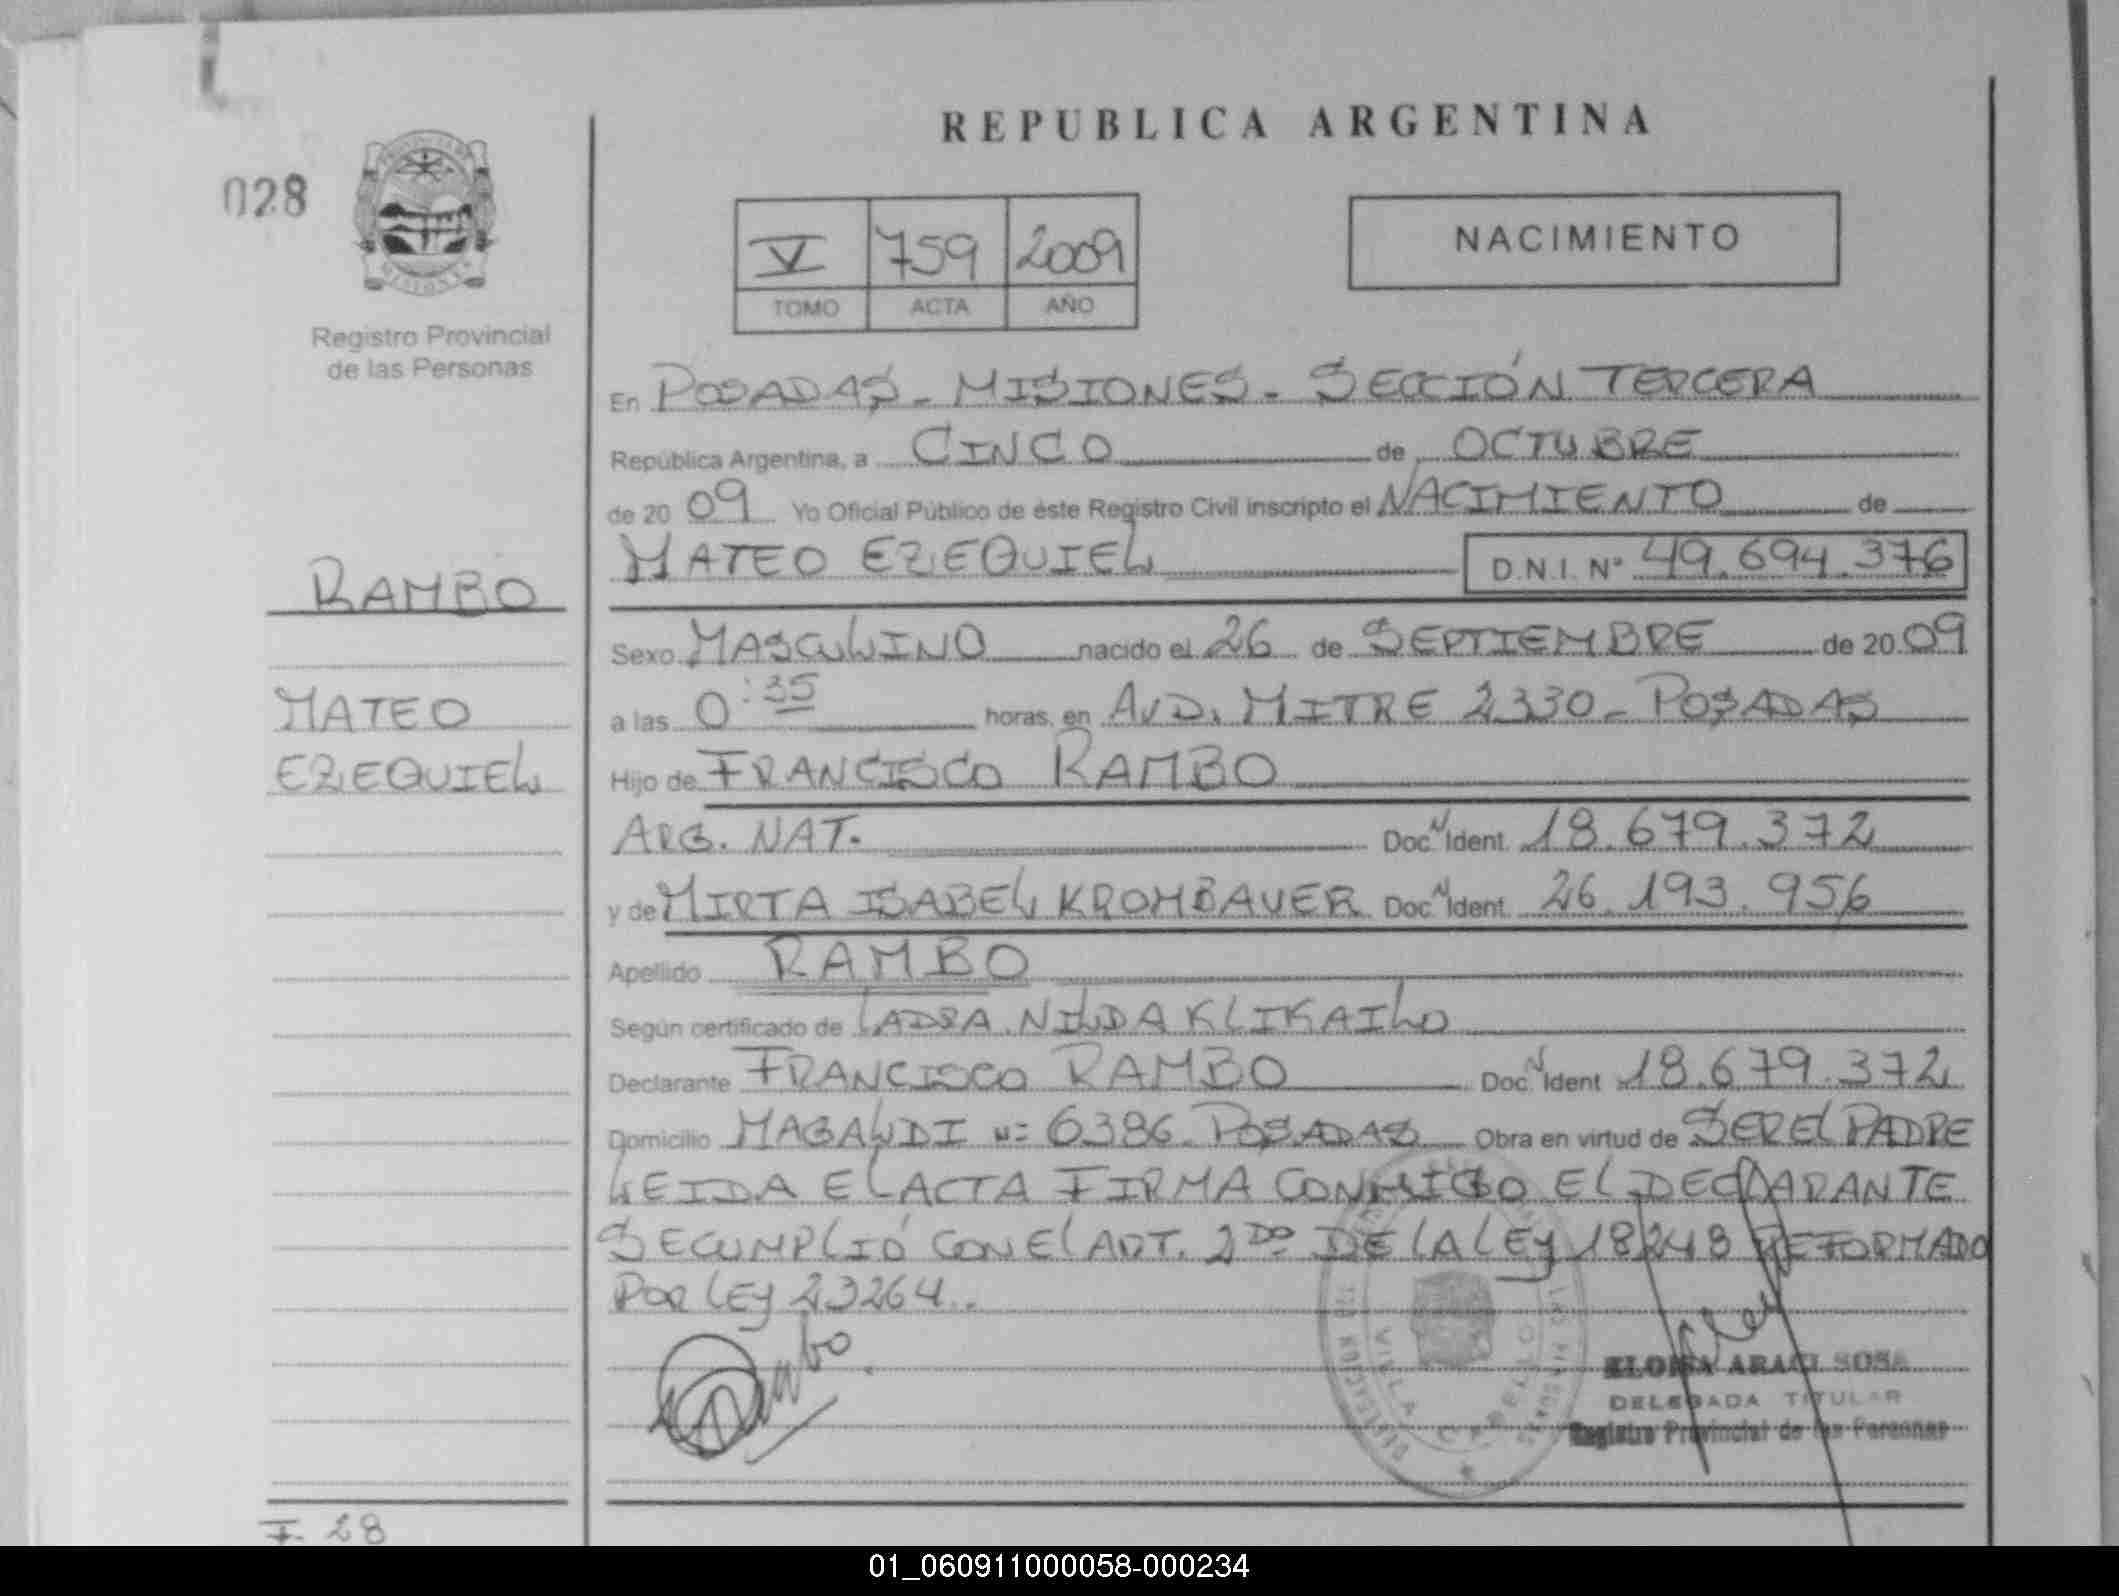 REPUBLICA ARGENTINA
028
V 759 2009
TOMO ACTA AÑO
NACIMIENTO
Registro Provincial
de las Personas
En POSADAS - MISIONES - SECCIÓN TERCERA
República Argentina, a CINCO de OCTUBRE
de 20 09 Yo Oficial Público de éste Registro Civil inscripto el NACIMIENTO de
MATEO EZEQUIEL D.N.I. Nº 49.694.376
RAMBO
Sexo MASCULINO nacido el 26 de SEPTIEMBRE de 20 09
MATEO
a las 0:35 horas, en AVD. MITRE 2330 - POSADAS
EZEQUIEL
Hijo de FRANCISCO RAMBO
ARG. NAT. Doc. N Ident. 18.679.372
y de MIRTA ISABEL KROMBAUER Doc. N Ident. 26.193.956
Apellido RAMBO
Según certificado de LADRA. NILDA KLIKAILO
Declarante FRANCISCO RAMBO Doc. N Ident 18.679.372
Domicilio MAGALDI Nº 6386 POSADAS Obra en virtud de SER EL PADRE
LEIDA EL ACTA FIRMA CONMIGO EL DECLARANTE
SE CUMPLIÓ CON EL ART. 2DO DE LA LEY 18248 REFORMADO
POR LEY 23264.
VILLA CABELLO
ELOISA ARACI SOSA
DELEGADA TITULAR
Registro Provincial de las Personas
F. 28
01_060911000058-000234